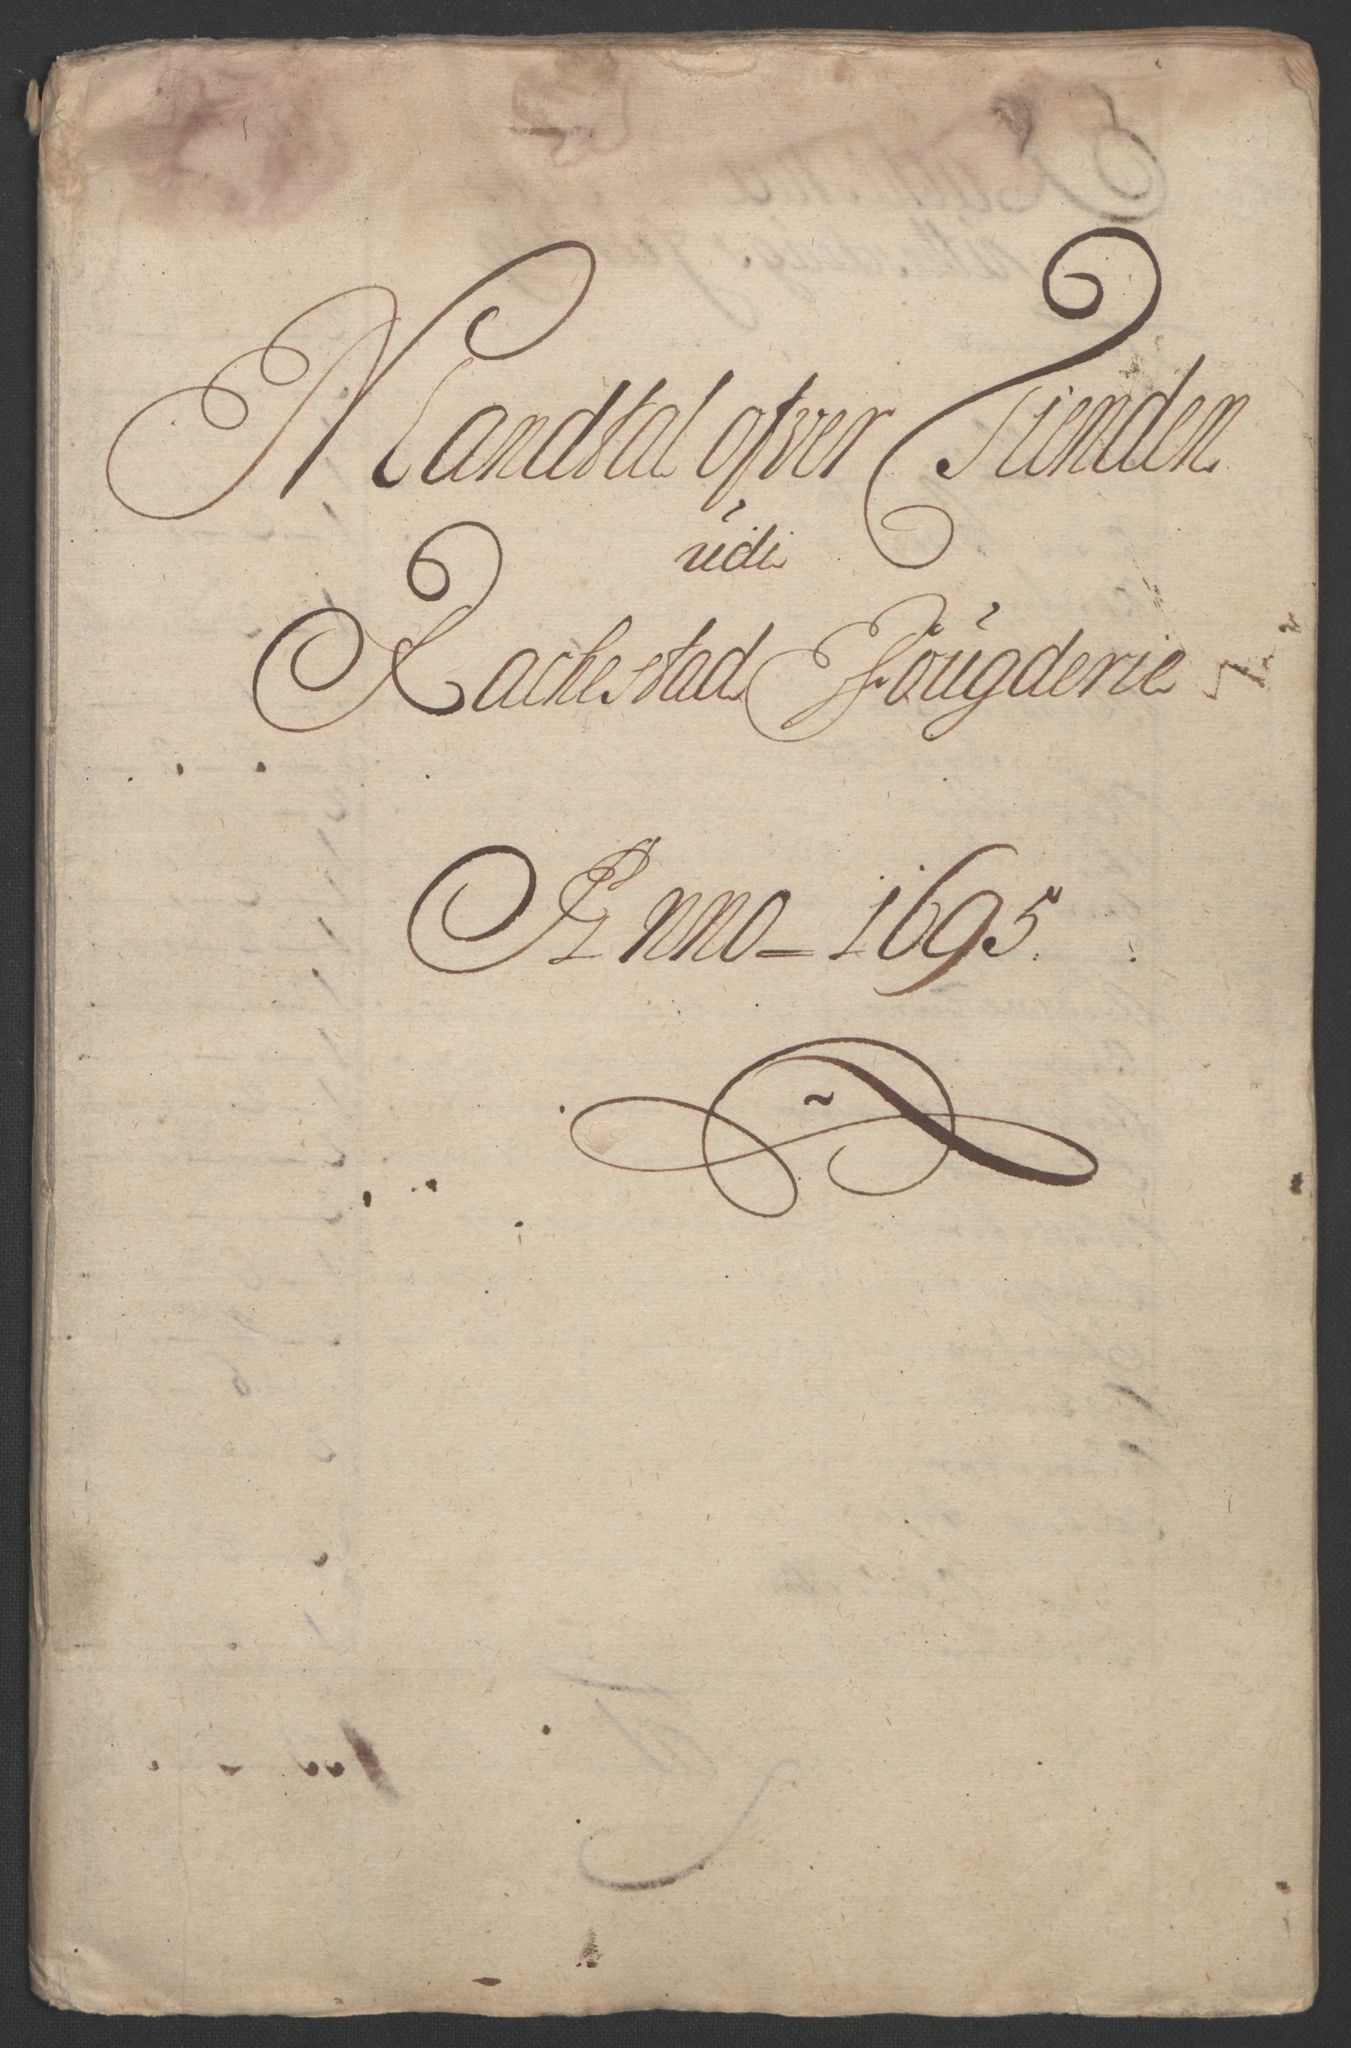 Mandtal ofver Tienden
udi
Rachestad Fougderie
Anno 1695.